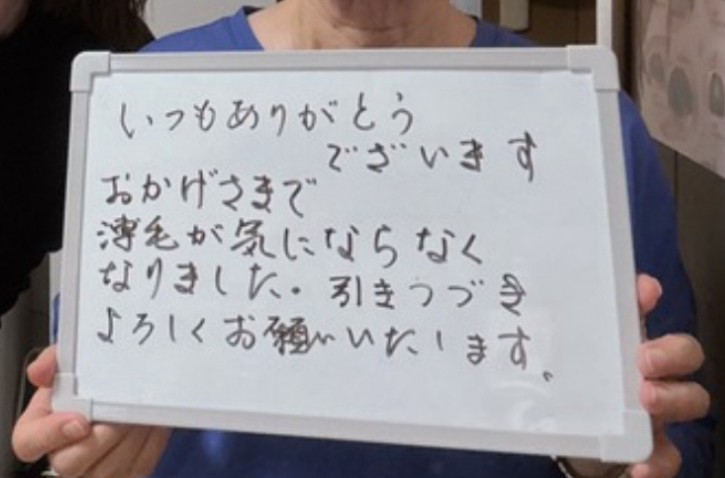 いつもありがとう
でざいます
おかげさまで
薄毛が気にならなく
なりました。引きつづき
よろしくお願いいたします。